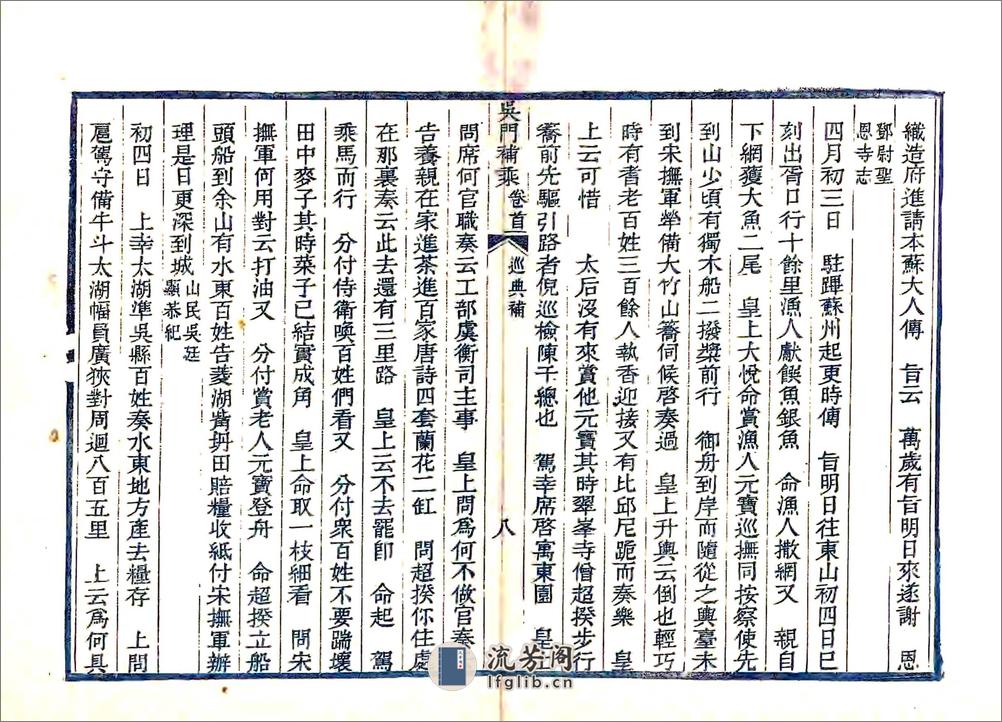 織造府進請本蘇大人傳　旨云　萬歲有旨明日來遂謝　恩
鄧尉聖
恩寺志
四月初三日　駐蹕蘇州起更時傳　旨明日往東山初四日巳
刻出胥口行十餘里漁人獻饌魚銀魚　命漁人撒網又　親自
下網獲大魚二尾　皇上大悅命賞漁人元寶巡撫同按察使先
到山少頃有獨木船二撥槳前行　御舟到岸而隨從之輿臺未
到宋撫軍犖備大竹山轎伺候啓奏過　皇上升輿云倒也輕巧
時有耆老百姓三百餘人執香迎接又有比邱尼跪而奏樂　皇
上云可惜　太后沒有來賞他元寶其時翠峯寺僧超揆步行
轎前先驅引路者倪巡檢陳千總也　駕幸席啓寓東園　皇
吳門補乘　卷首　巡典補　八
問席何官職奏云工部虞衡司主事　皇上問爲何不做官奏
告養親在家進茶進百家唐詩四套蘭花二缸　問超揆你住處
在那裏奏云此去還有三里路　皇上云不去罷卽　命起　駕
乘馬而行　分付侍衛喚百姓們看又　分付衆百姓不要踹壞
田中麥子其時菜子已結實成角　皇上命取一枝細看　問宋
撫軍何用對云打油又　分付賞老人元寶登舟　命超揆立船
頭船到余山有水東百姓告菱湖嘴坍田賠糧收紙付宋撫軍辦
理是日更深到城
山民吳廷
顯恭紀
初四日　上幸太湖準吳縣百姓奏水東地方產去糧存　上問
扈駕守備牛斗太湖幅員廣狹對周週八百五里　上云爲何具
流芳阁
lfglib.cn